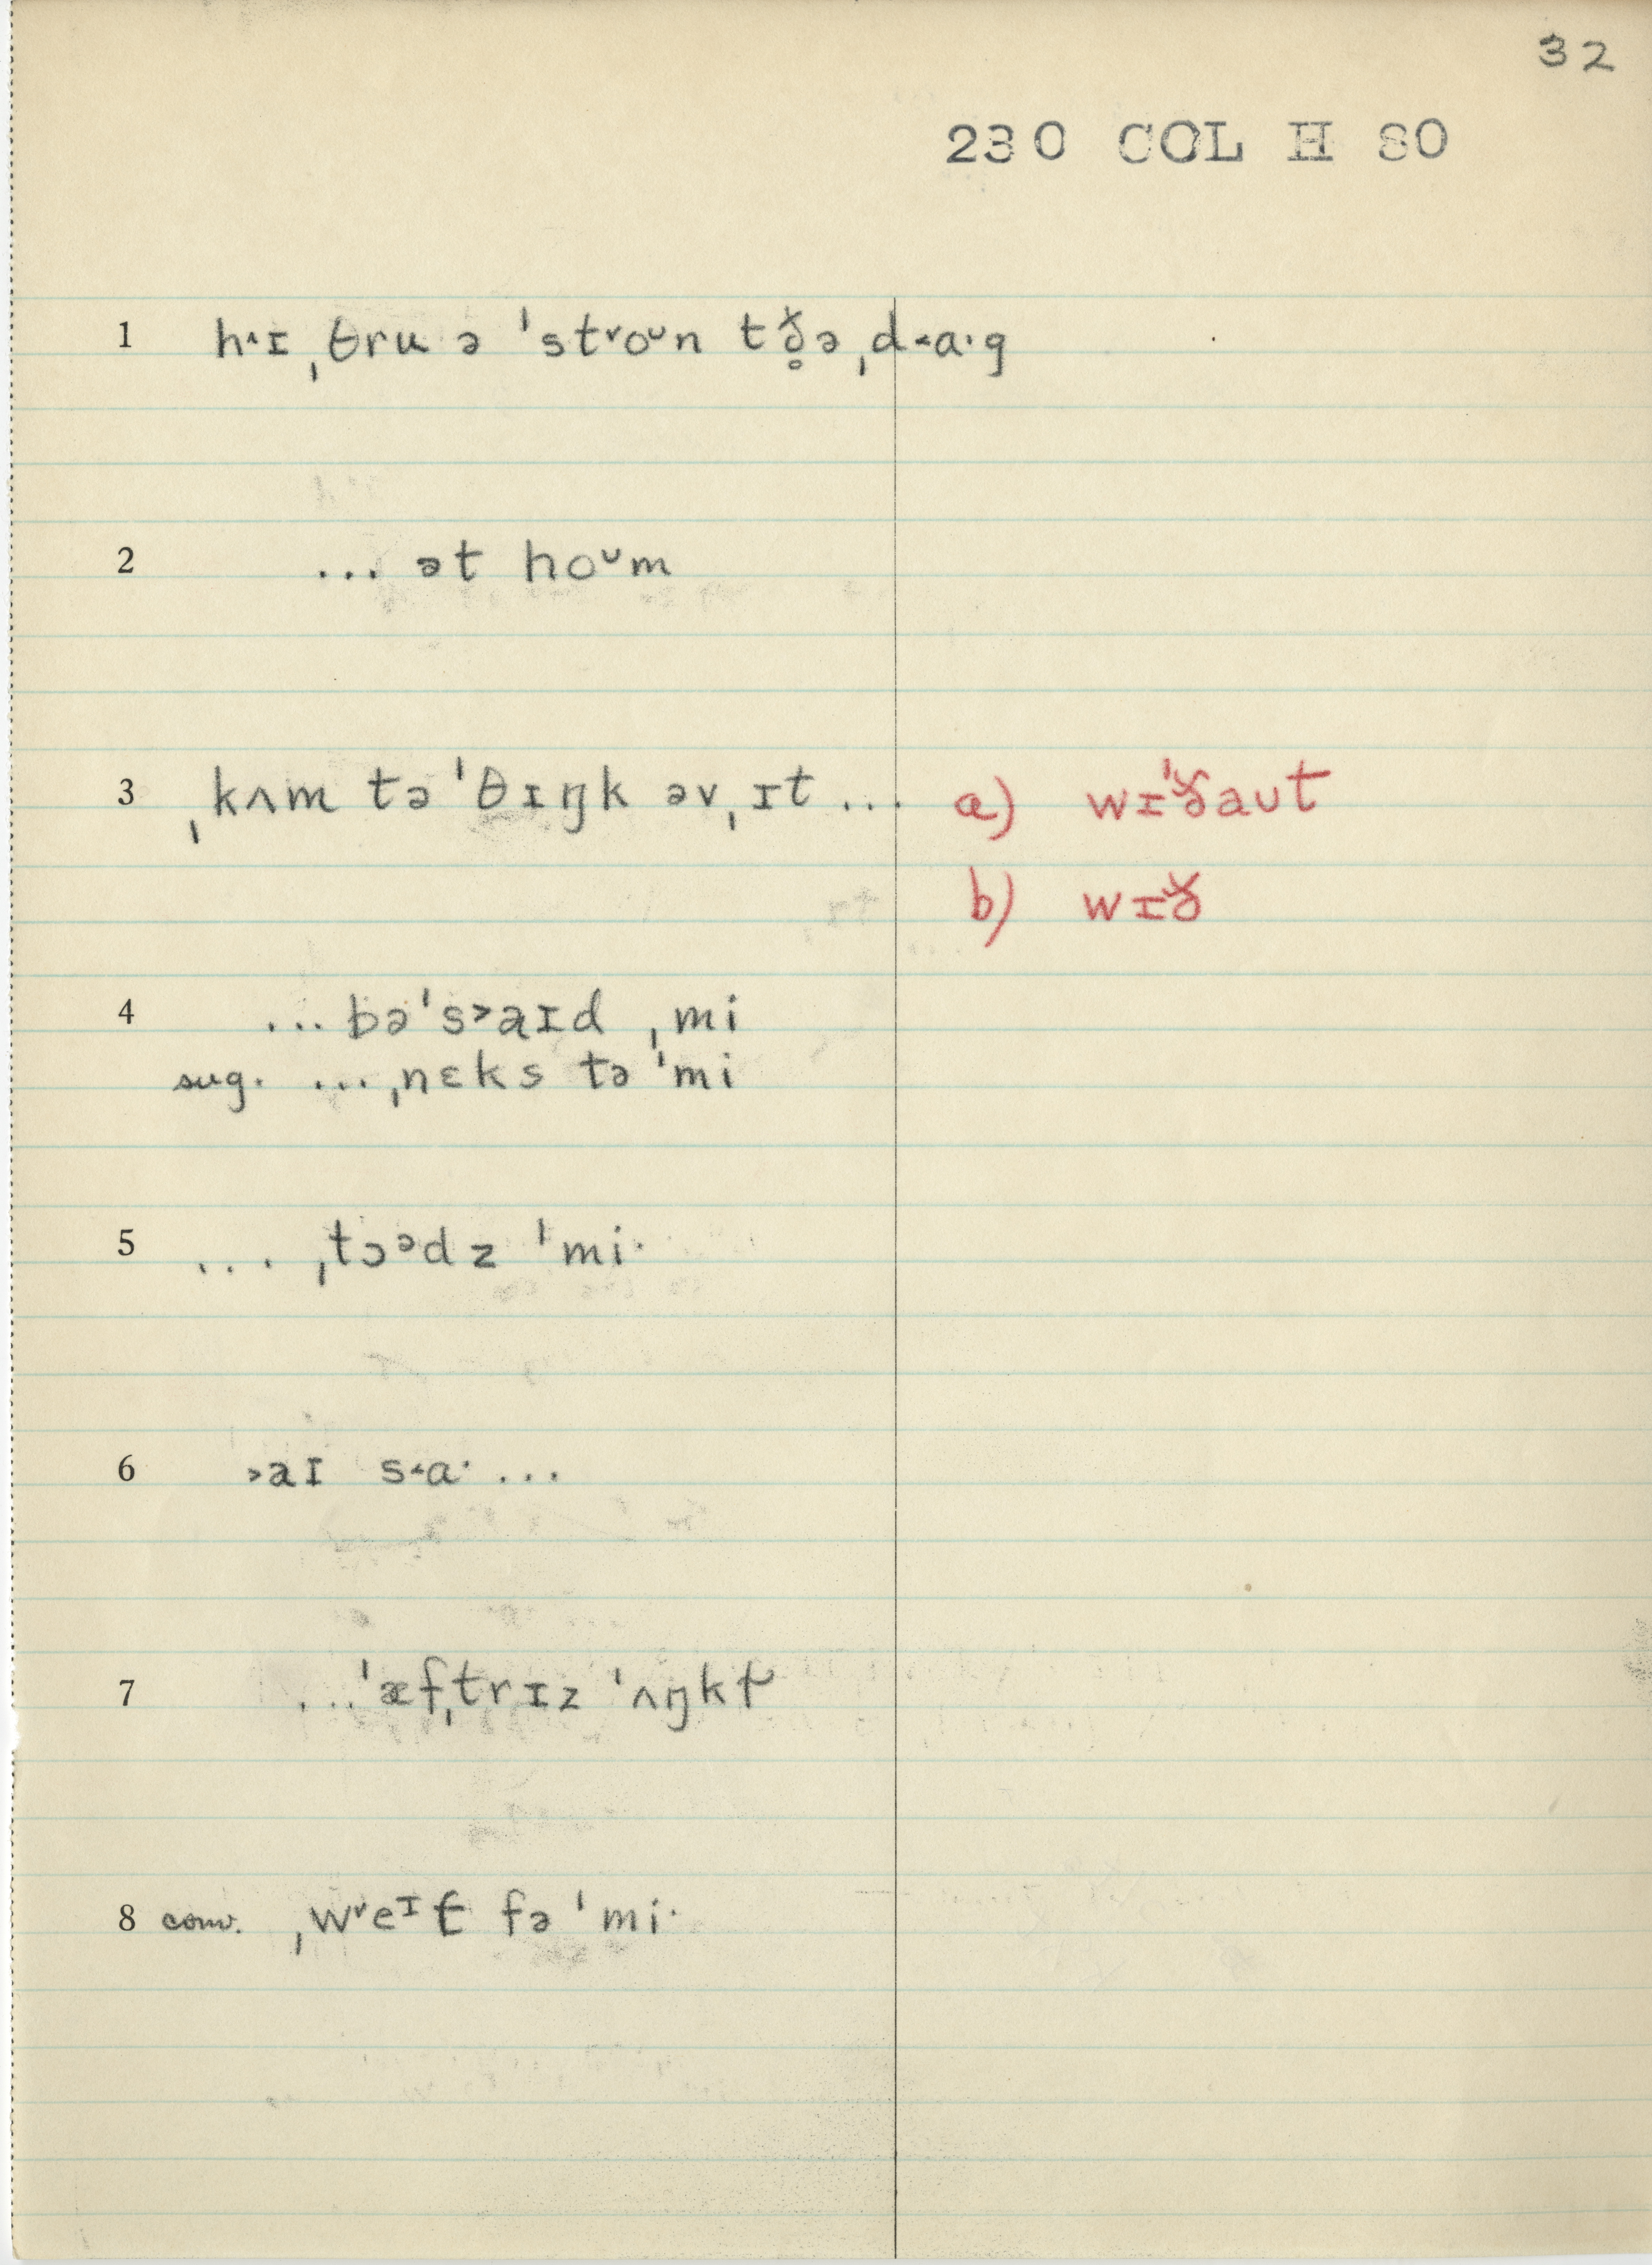 32
230 COL H 80
1 h˄ɪ ˌθru ə ˈst˅roᴜn tð̥ə ˌd˂ɑˑg
2 ... ət hoᴜm
3 ˌkʌm tə ˈθɪŋk əvˌɪt ... a) wɪˈðaut
b) wɪð
4 ... bəˈs˃aɪd ˌmi
sug. ... ˌnɛks tə ˈmi
5 ... ˌtɔᵊdz ˈmiˑ
6 ˃aɪ s˂ɑˑ ...
7 ... ˈæfˌtrɪz ˈʌŋkɫ
8 conv. ˌw˅eᶦt̬ fə ˈmiˑ